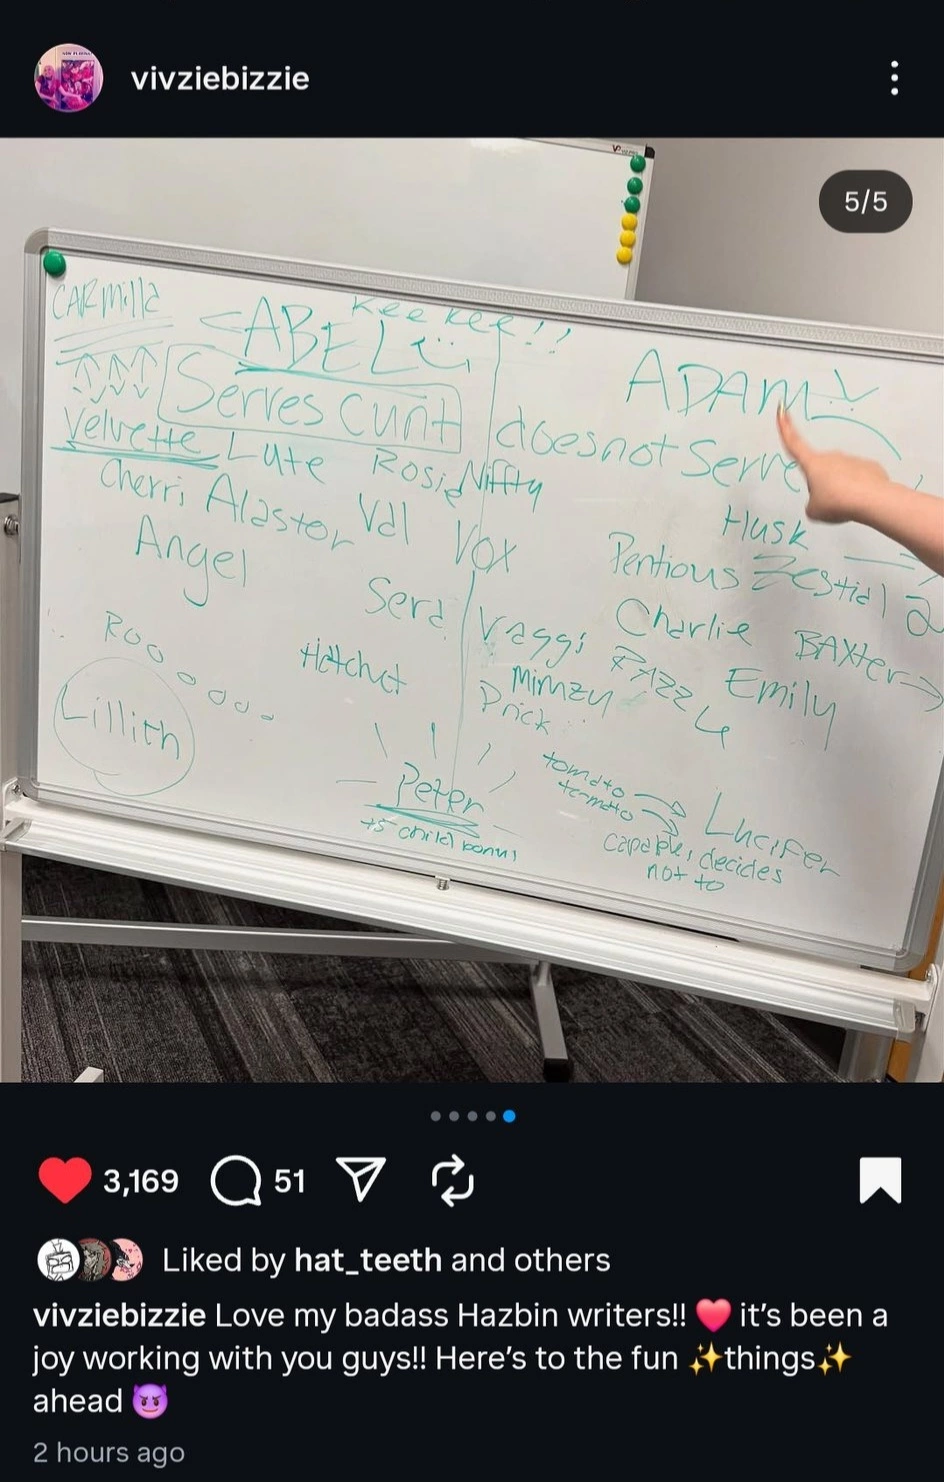 vivziebizzie
5/5
CARmilla
<ABEL
KeeKee!!
ADAM
Serves Cunt
does not Serve
Velvette Lute Rosie Niffty
Cherri Alastor Val Vox
Angel
Husk
Pentious Zestial
Sera Vaggi Charlie BAXter
Hatchet Mimzy RAzz Emily
Prick
Rooooooo
Lillith
Peter
+5 child bonus
tomato
tomato
Lucifer
capable, decides
not to
3,169 51
Liked by hat_teeth and others
vivziebizzie Love my badass Hazbin writers!! ❤️ it's been a
joy working with you guys!! Here's to the fun ✨things✨
ahead 😈
2 hours ago